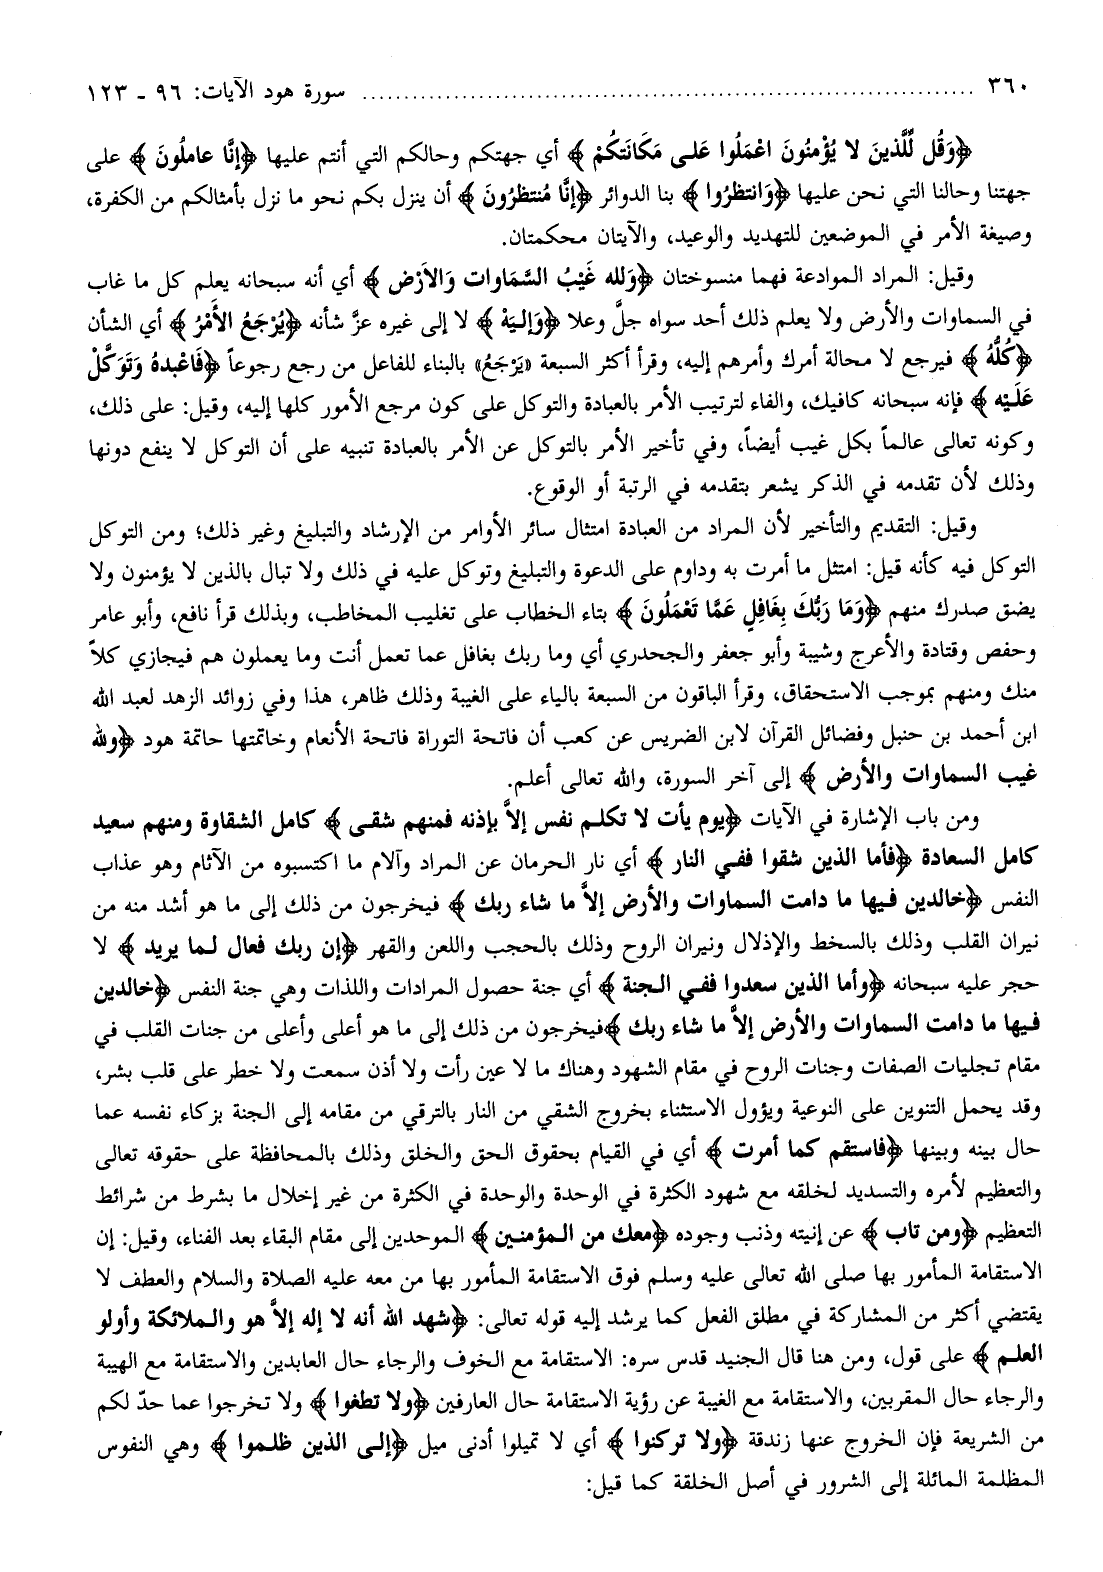 ٣٦٠ ........................................................................ سورة هود الآيات: ٩٦ ـ ١٢٣
﴿وَقُل لِّلَّذينَ لا يُؤْمنُونَ اعْمَلُوا عَلـى مَكَانَتكُمْ ﴾ أي جهتكم وحالكم التي أنتم عليها ﴿إنَّا عاملُونَ ﴾ على
جهتنا وحالنا التي نحن عليها ﴿وَانتظرُوا ﴾ بنا الدوائر ﴿إنَّا مُنتظرُونَ ﴾ أن ينزل بكم نحو ما نزل بأمثالكم من الكفرة،
وصيغة الأمر في الموضعين للتهديد والوعيد، والآيتان محكمتان.
وقيل: المراد الموادعة فهما منسوختان ﴿وَلله غَيْبُ السَّمَاوات وَالأَرْض ﴾ أي أنه سبحانه يعلم كل ما غاب
في السماوات والأرض ولا يعلم ذلك أحد سواه جلَّ وعلا ﴿وَإلـيَهْ ﴾ لا إلى غيره عزَّ شأنه ﴿يُرْجَعُ الأَمْرُ ﴾ أي الشأن
﴿كُلُّهُ ﴾ فيرجع لا محالة أمرك وأمرهم إليه، وقرأ أكثر السبعة «يَرْجَعُ» بالبناء للفاعل من رجع رجوعاً ﴿فَاعْبدهُ وَتَوَكَّلْ
عَلَـيْه ﴾ فإنه سبحانه كافيك، والفاء لترتيب الأمر بالعبادة والتوكل على كون مرجع الأمور كلها إليه، وقيل: على ذلك،
وكونه تعالى عالماً بكل غيب أيضاً، وفي تأخير الأمر بالتوكل عن الأمر بالعبادة تنبيه على أن التوكل لا ينفع دونها
وذلك لأن تقدمه في الذكر يشعر بتقدمه في الرتبة أو الوقوع.
وقيل: التقديم والتأخير لأن المراد من العبادة امتثال سائر الأوامر من الإرشاد والتبليغ وغير ذلك؛ ومن التوكل
التوكل فيه كأنه قيل: امتثل ما أمرت به وداوم على الدعوة والتبليغ وتوكل عليه في ذلك ولا تبال بالذين لا يؤمنون ولا
يضق صدرك منهم ﴿وَمَا رَبُّكَ بِغَافِلٍ عَمَّا تَعْمَلُونَ ﴾ بتاء الخطاب على تغليب المخاطب، وبذلك قرأ نافع، وأبو عامر
وحفص وقتادة والأعرج وشيبة وأبو جعفر والجحدري أي وما ربك بغافل عما تعمل أنت وما يعملون هم فيجازي كلاً
منك ومنهم بموجب الاستحقاق، وقرأ الباقون من السبعة بالياء على الغيبة وذلك ظاهر، هذا وفي زوائد الزهد لعبد الله
ابن أحمد بن حنبل وفضائل القرآن لابن الضريس عن كعب أن فاتحة التوراة فاتحة الأنعام وخاتمتها خاتمة هود ﴿ولله
غيب السماوات والأرض ﴾ إلى آخر السورة، والله تعالى أعلم.
ومن باب الإشارة في الآيات ﴿يوم يأت لا تكلـم نفس إلاَّ بإذنه فمنهم شقـى ﴾ كامل الشقاوة ومنهم سعيد
كامل السعادة ﴿فأما الذين شقوا ففـي النار ﴾ أي نار الحرمان عن المراد وآلام ما اكتسبوه من الآثام وهو عذاب
النفس ﴿خالدين فـيها ما دامت السماوات والأرض إلاَّ ما شاء ربك ﴾ فيخرجون من ذلك إلى ما هو أشد منه من
نيران القلب وذلك بالسخط والإذلال ونيران الروح وذلك بالحجب واللعن والقهر ﴿إن ربك فعال لـما يريد ﴾ لا
حجر عليه سبحانه ﴿وأما الذين سعدوا ففـي الـجنة ﴾ أي جنة حصول المرادات واللذات وهي جنة النفس ﴿خالدين
فـيها ما دامت السماوات والأرض إلاَّ ما شاء ربك ﴾فيخرجون من ذلك إلى ما هو أعلى وأعلى من جنات القلب في
مقام تجليات الصفات وجنات الروح في مقام الشهود وهناك ما لا عين رأت ولا أذن سمعت ولا خطر على قلب بشر،
وقد يحمل التنوين على النوعية ويؤول الاستثناء بخروج الشقي من النار بالترقي من مقامه إلى الجنة بزكاء نفسه عما
حال بينه وبينها ﴿فاستقم كما أمرت ﴾ أي في القيام بحقوق الحق والخلق وذلك بالمحافظة على حقوقه تعالى
والتعظيم لأمره والتسديد لخلقه مع شهود الكثرة في الوحدة والوحدة في الكثرة من غير إخلال ما بشرط من شرائط
التعظيم ﴿ومن تاب ﴾ عن إنيته وذنب وجوده ﴿معك من الـمؤمنـين ﴾ الموحدين إلى مقام البقاء بعد الفناء، وقيل: إن
الاستقامة المأمور بها صلى الله تعالى عليه وسلم فوق الاستقامة المأمور بها من معه عليه الصلاة والسلام والعطف لا
يقتضي أكثر من المشاركة في مطلق الفعل كما يرشد إليه قوله تعالى: ﴿شهد الله أنه لا إله إلاَّ هو والـملائكة وأولو
العلـم ﴾ على قول، ومن هنا قال الجنيد قدس سره: الاستقامة مع الخوف والرجاء حال العابدين والاستقامة مع الهيبة
والرجاء حال المقربين، والاستقامة مع الغيبة عن رؤية الاستقامة حال العارفين ﴿ولا تطغوا ﴾ ولا تخرجوا عما حدّ لكم
من الشريعة فإن الخروج عنها زندقة ﴿ولا تركنوا ﴾ أي لا تميلوا أدنى ميل ﴿إلـى الذين ظلـموا ﴾ وهي النفوس
المظلمة المائلة إلى الشرور في أصل الخلقة كما قيل: